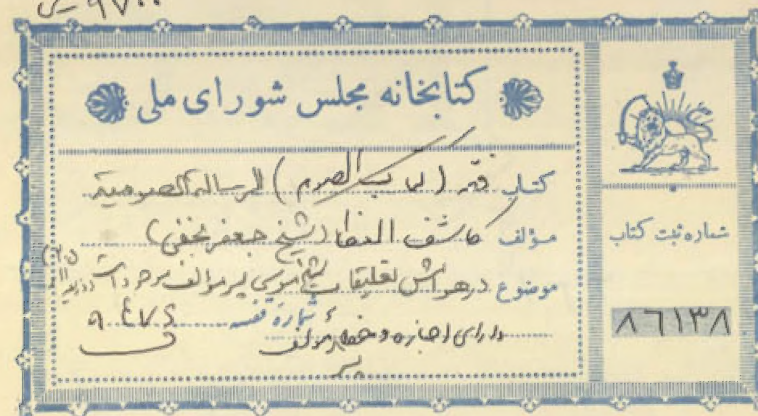 ۹۷۰۰
کتابخانه مجلس شورای ملی
کتاب فقه (کتاب الصوم) الرسالة الصومیة
مؤلف کاشف الغطا (شیخ جعفر نجفی)
موضوع در هوامش تعلیقات شیخ موسی پسر مؤلف موجود است
شماره قفسه
دارای اجازه و خط مؤلف
شماره ثبت کتاب
۸۶۱۳۸